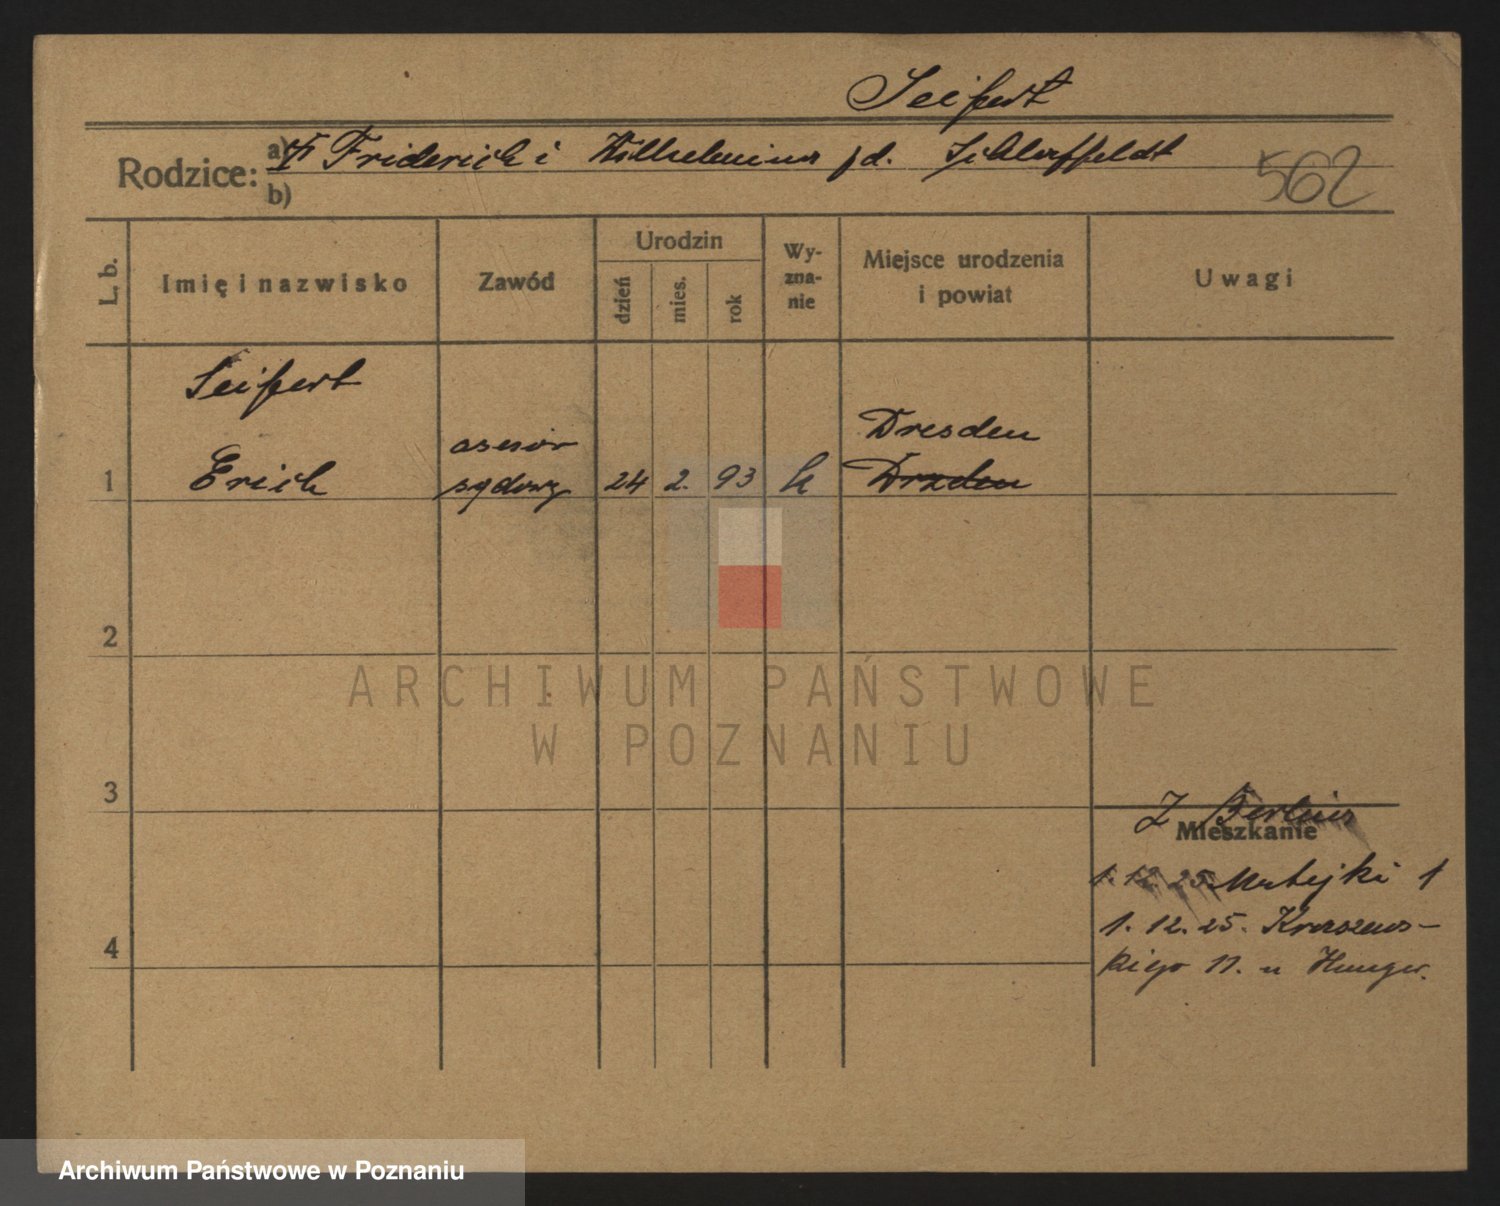 Seifert
Rodzice: a) Friderich i Wilhelmina
b)
562
L. b.
Imię i nazwisko
Zawód
Urodzin
dzień
mies.
rok
Wy-
zna-
nie
Miejsce urodzenia
i powiat
Uwagi
Seifert
Erich
asesor
sądowy
1
24
2.
93
k
Dresden
2
3
4
Z Berlina
Mieszkanie
1. 12. 25. Matejki 1
1. 12. 25. Kraszews-
kiego 11. u
ARCHIWUM PAŃSTWOWE
W POZNANIU
Archiwum Państwowe w Poznaniu